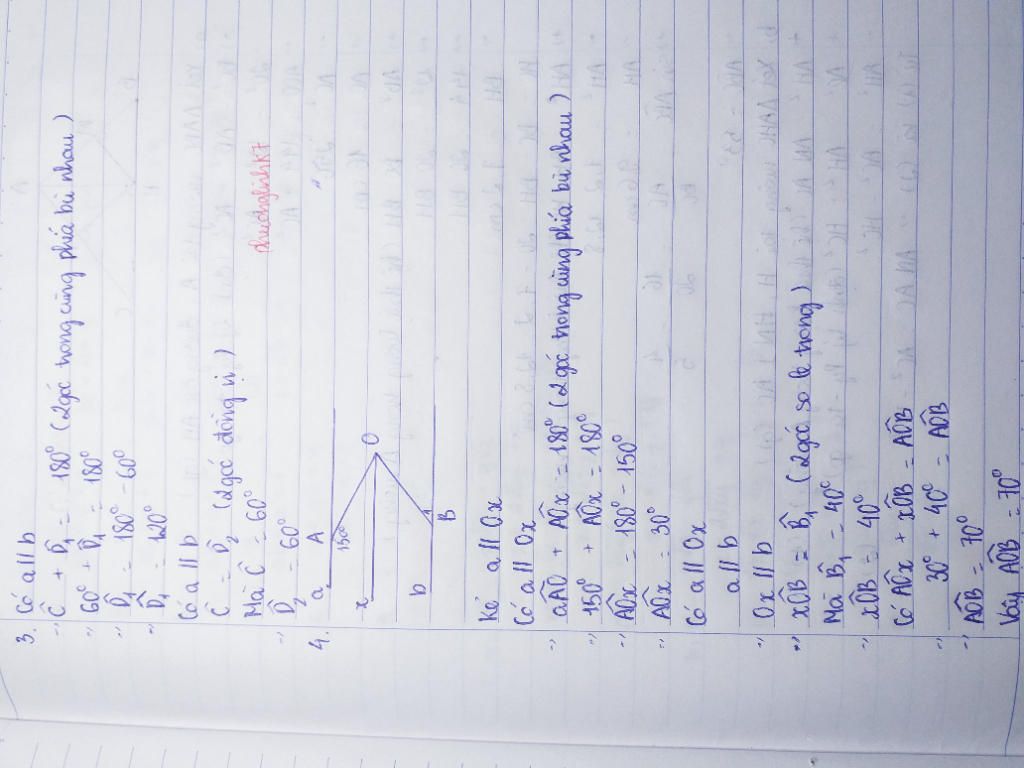 3. Có a // b
=> Ĉ + D̂₁ = 180° (2 góc trong cùng phía bù nhau)
=> 60° + D̂₁ = 180°
=> D̂₁ = 180° - 60°
=> D̂₁ = 120°
Có a // b
Ĉ = D̂₂ (2 góc đồng vị)
Mà Ĉ = 60°
=> D̂₂ = 60°
4.
a A
150°
x O
b 1
B
Kẻ a // Ox
Có a // Ox
=> aÂO + AÔx = 180° (2 góc trong cùng phía bù nhau)
=> 150° + AÔx = 180°
=> AÔx = 180° - 150°
=> AÔx = 30°
Có a // Ox
a // b
=> Ox // b
=> xÔB = B̂₁ (2 góc so le trong)
Mà B̂₁ = 40°
=> xÔB = 40°
Có AÔx + xÔB = AÔB
=> 30° + 40° = AÔB
=> AÔB = 70°
Vậy AÔB = 70°